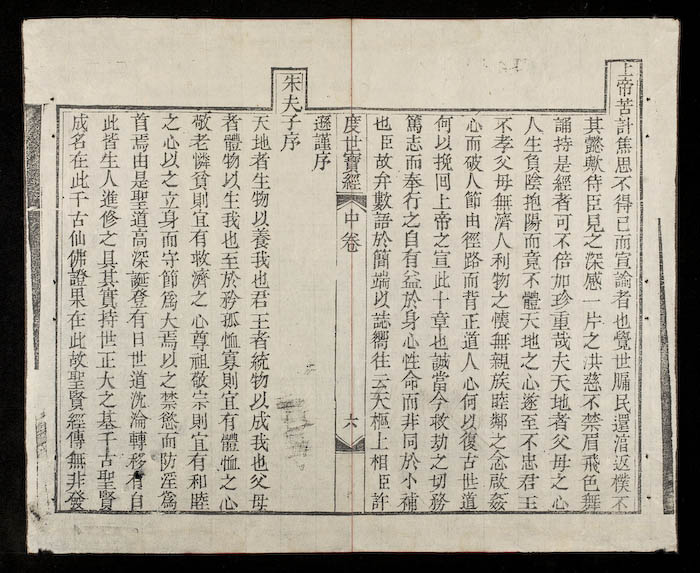 上帝苦計焦思不得已而宣諭者也覺世牖民還湻返樸不
其懿歟侍臣見之深感一片之洪慈不禁眉飛色舞
誦持是經者可不倍加珍重哉夫天地者父母之心
人生負陰抱陽而竟不體天地之心遂至不忠君王
不孝父母無濟人利物之懷無親族睦鄰之念敢姦
心而破人節由徑路而背正道人心何以復古世道
何以挽回上帝之宣此十章也誠當今救劫之切務
篤志而奉行之自有益於身心性命而非同於小補
也臣故弁數語於簡端以誌嚮往云天樞上相臣許
遜謹序
度世寶經
中卷
六
朱夫子序
天地者生物以養我也君王者統物以成我也父母
者體物以生我也至於矜孤恤寡則宜有體恤之心
敬老憐貧則宜有救濟之心尊祖敬宗則宜有和睦
之心以之立身而守節爲大焉以之禁慾而防淫爲
首焉由是聖道高深誕登有日世道沈淪轉移有自
此皆生人進修之具其實持世正大之基千古聖賢
成名在此千古仙佛證果在此故聖賢經傳無非發